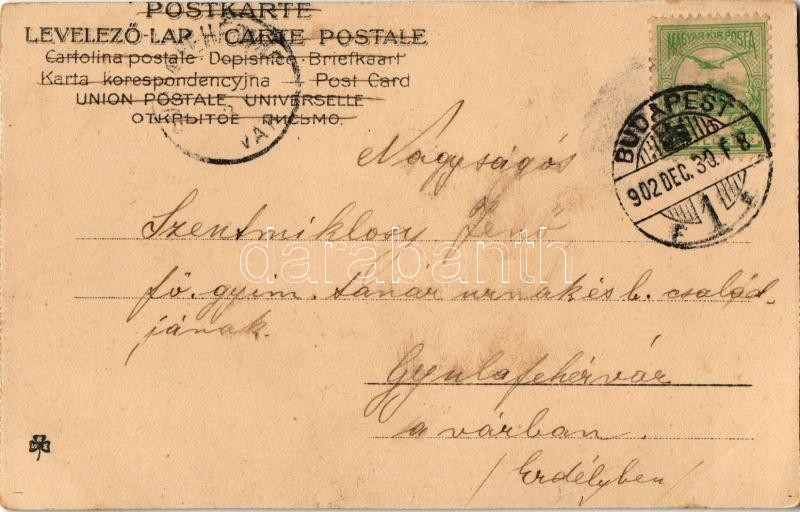 POSTKARTE
LEVELEZŐ-LAP. CARTE POSTALE
Cartolina postale Dopisnice Briefkaart
Karta korespondencyjna — Post Card
UNION POSTALE UNIVERSELLE
ОТКРЫТОЕ ПИСЬМО.
VÁR
MAGYAR KIR. POSTA
BUDAPEST
902 DEC. 30. F 8
1
Nagyságos
Szentmiklosy Jenő
darabanth
fő. gyim. tanár urnak és b. család-
jának.
Gyulafehérvár
a várban.
/Erdélyben/